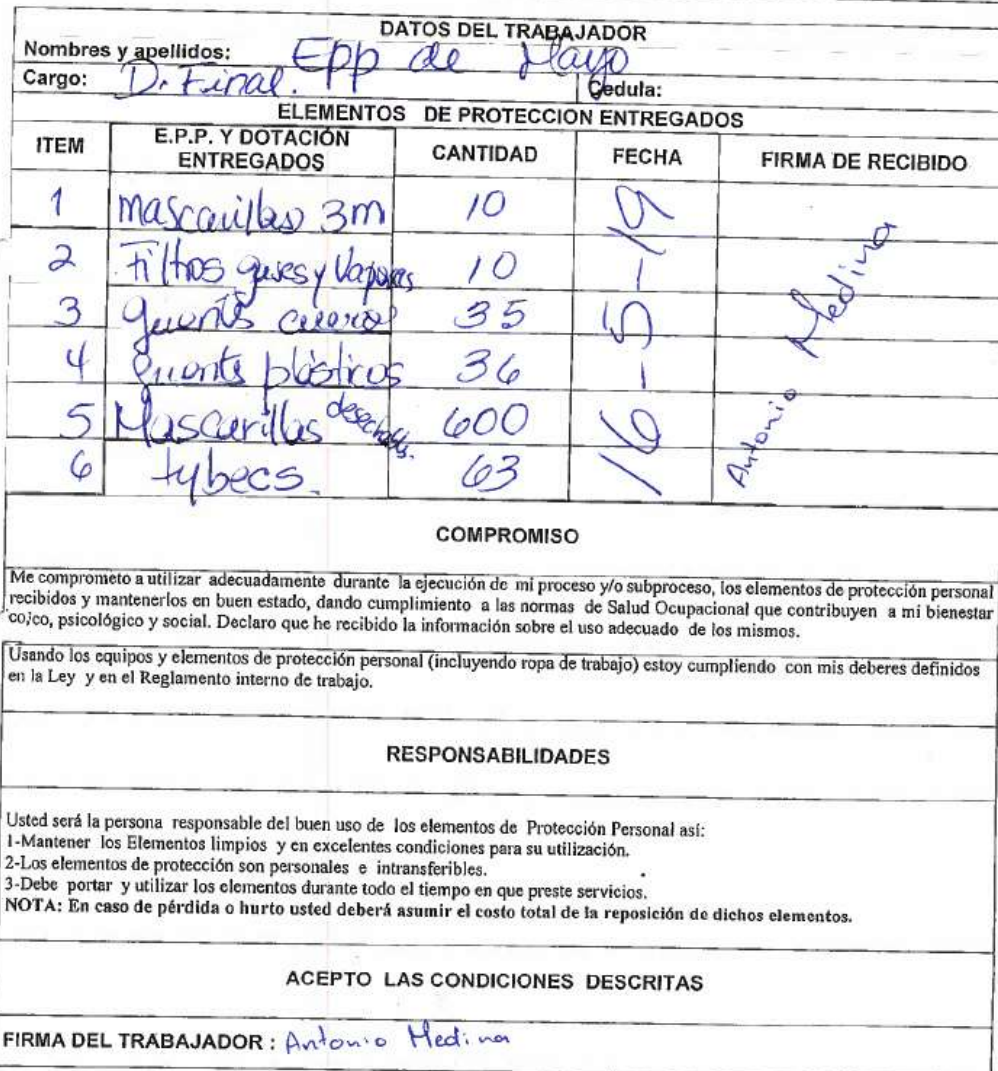 DATOS DEL TRABAJADOR
Nombres y apellidos: Epp de Mayo
Cargo: D. Final. Cedula:
ELEMENTOS DE PROTECCION ENTREGADOS
ITEM E.P.P. Y DOTACIÓN ENTREGADOS CANTIDAD FECHA FIRMA DE RECIBIDO
1 mascarillas 3m 10
2 Filtros gases y Vapores 10
3 guants cueros 35
4 guants plásticos 36
5 Mascarillas desechabls. 600
6 tybecs. 63
16-5-19
Antonio Medina
COMPROMISO
Me comprometo a utilizar adecuadamente durante la ejecución de mi proceso y/o subproceso, los elementos de protección personal
recibidos y mantenerlos en buen estado, dando cumplimiento a las normas de Salud Ocupacional que contribuyen a mi bienestar
co,co, psicológico y social. Declaro que he recibido la información sobre el uso adecuado de los mismos.
Usando los equipos y elementos de protección personal (incluyendo ropa de trabajo) estoy cumpliendo con mis deberes definidos
en la Ley y en el Reglamento interno de trabajo.
RESPONSABILIDADES
Usted será la persona responsable del buen uso de los elementos de Protección Personal así:
1-Mantener los Elementos limpios y en excelentes condiciones para su utilización.
2-Los elementos de protección son personales e intransferibles.
3-Debe portar y utilizar los elementos durante todo el tiempo en que preste servicios.
NOTA: En caso de pérdida o hurto usted deberá asumir el costo total de la reposición de dichos elementos.
ACEPTO LAS CONDICIONES DESCRITAS
FIRMA DEL TRABAJADOR : Antonio Medina